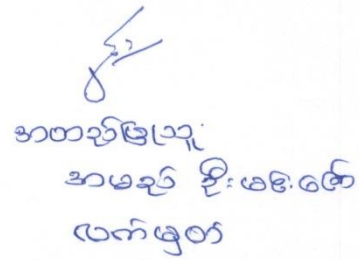 အတည်ပြုသူ
အမည် ဦးမင်းဇော်
လက်မှတ်